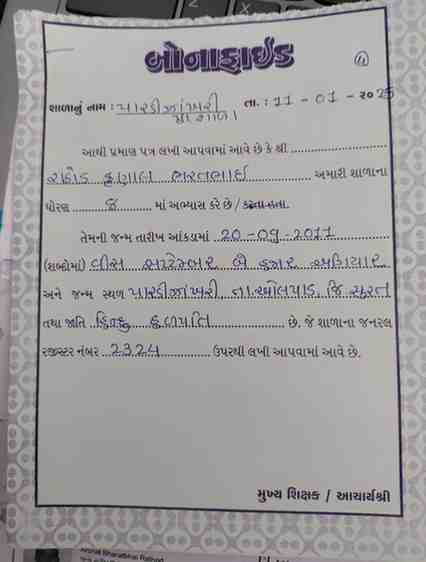 બોનાફાઈડ
શાળાનું નામ : પારડીઝાંખરી પ્રા શાળા તા. : 11 - 01 - ૨૦25
આથી પ્રમાણ પત્ર લખી આપવામાં આવે છે કે શ્રી
રાઠોડ કૃણાલ ભરતભાઈ અમારી શાળાના
ધોરણ 8 માં અભ્યાસ કરે છે / કરતા હતા.
તેમની જન્મ તારીખ આંકડામાં 20-09-2011
(શબ્દોમાં) વીસ સપ્ટેમ્બર બે હજાર અગિયાર
અને જન્મ સ્થળ પારડીઝાંખરી, તા.ઓલપાડ, જિ સુરત
તથા જાતિ હિન્દુ હળપતિ છે. જે શાળાના જનરલ
રજીસ્ટર નંબર 2324 ઉપરથી લખી આપવામાં આવે છે.
મુખ્ય શિક્ષક / આચાર્યશ્રી
Bharatbhai Rathod